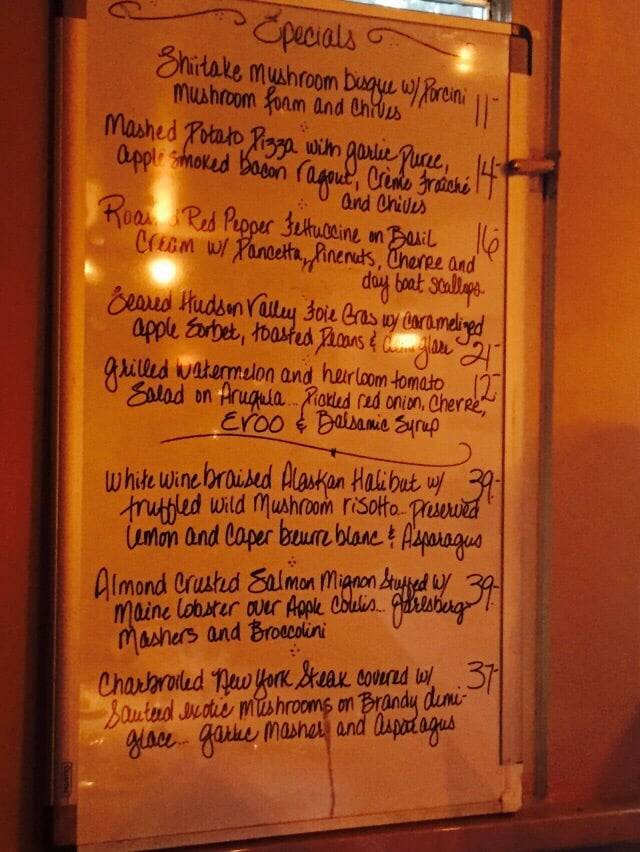 Specials
Shiitake Mushroom bisque w/ Porcini
Mushroom foam and Chives 11-
Mashed Potato Pizza with garlic Puree,
apple smoked bacon ragout, Crème Fraîche 14-
and Chives
Roasted Red Pepper Fettuccine on Basil 16
Cream w/ Pancetta, Pinenuts, Chevre and
day boat scallops.
Seared Hudson Valley Foie Gras w/ Caramelized
apple Sorbet, toasted Pecans & demi glace 21-
Grilled Watermelon and heirloom tomato 12-
Salad on Arugula... Pickled red onion, Chevre,
EVOO & Balsamic Syrup
White wine braised Alaskan Halibut w/ 39-
truffled wild Mushroom risotto... Preserved
lemon and Caper beurre blanc & Asparagus
Almond Crusted Salmon Mignon Stuffed w/ 39-
Maine lobster over Apple Coulis... Jarlsberg
Mashers and Broccolini
Charbroiled New York Steak covered w/ 37-
Sauteed exotic Mushrooms on Brandy demi-
glace... garlic Masher and Asparagus